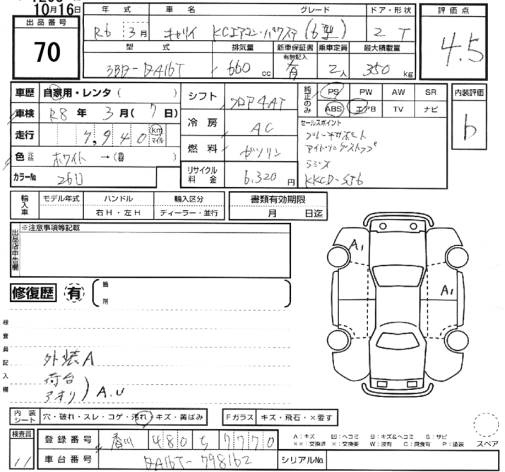 10月16日
出品番号
70
年式 車名 グレード ドア・形状
R6 3月 キャリイ KCエアコン・パワステ(6型) 2 T
評価点
4.5
型式 排気量 新車保証書 有無記入 乗車定員 最大積載量
3BD-DA16T 660 cc 有 2人 350 kg
車歴 自家用・レンタ( )
車検 R8年 3月(7日)
走行 7,940 km マイル
色 ホワイト→(番)
カラーNo 26U
シフト フロア4AT
冷房 AC
燃料 ガソリン
リサイクル料金 6,320円
純正のみ
PS PW AW SR
ABS エアB TV ナビ
セールスポイント
ブレーキサポート
アイドリングストップ
ラジオ
KKCD-S56
内装評価
b
輸入車 モデル年式 ハンドル 輸入区分 書類有効期限
右H・左H ディーラー・並行 月 日迄
出品店申告欄
※注意事項等記載
修復歴 有 箇所
検査員記入欄
外装A
荷台
アオリ) A.U
A1
A1
内装シート 穴・破れ・スレ・コゲ・汚れ・キズ・黄ばみ Fガラス キズ・飛石・×要す
スペア
検査員
11
登録番号 香川 480 ち 7770
車台番号 DA16T-798162 シリアルNo